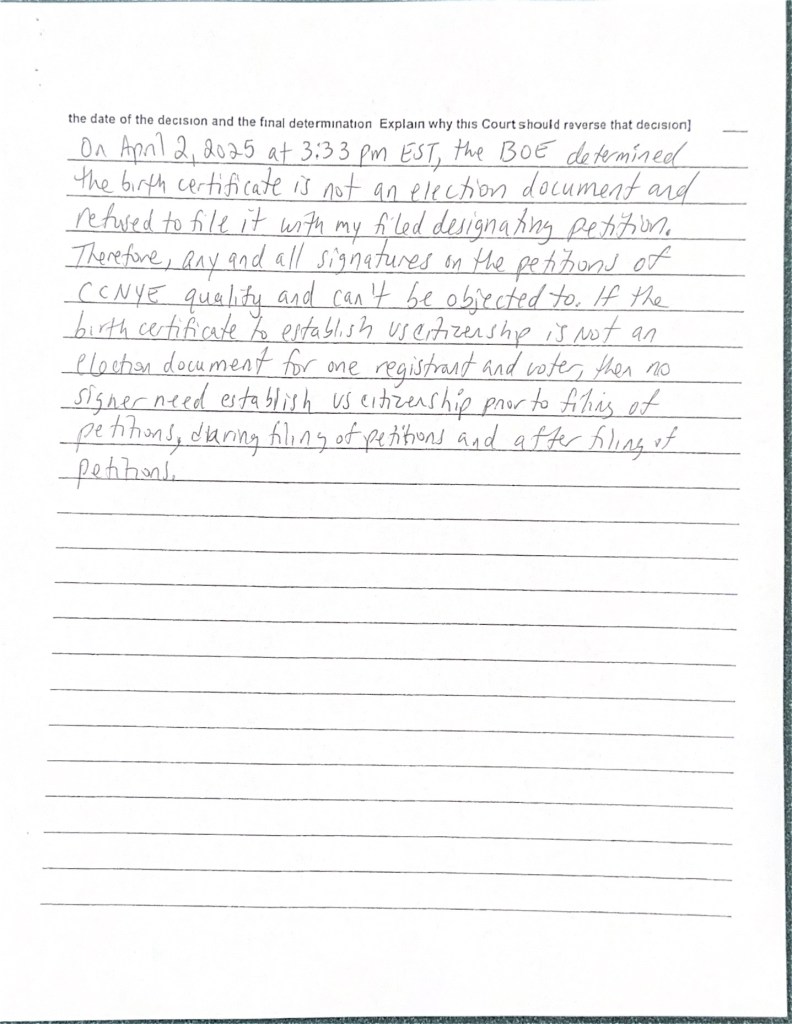 the date of the decision and the final determination Explain why this Court should reverse that decision]
On April 2, 2025 at 3:33 pm EST, the BOE determined
the birth certificate is not an election document and
refused to file it with my filed designating petition.
Therefore, any and all signatures on the petitions of
CCNYE quality and can't be objected to. If the
birth certificate to establish US citizenship is not an
election document for one registrant and voter, then no
signer need establish US citizenship prior to filing of
petitions, during filing of petitions and after filing of
petitions.